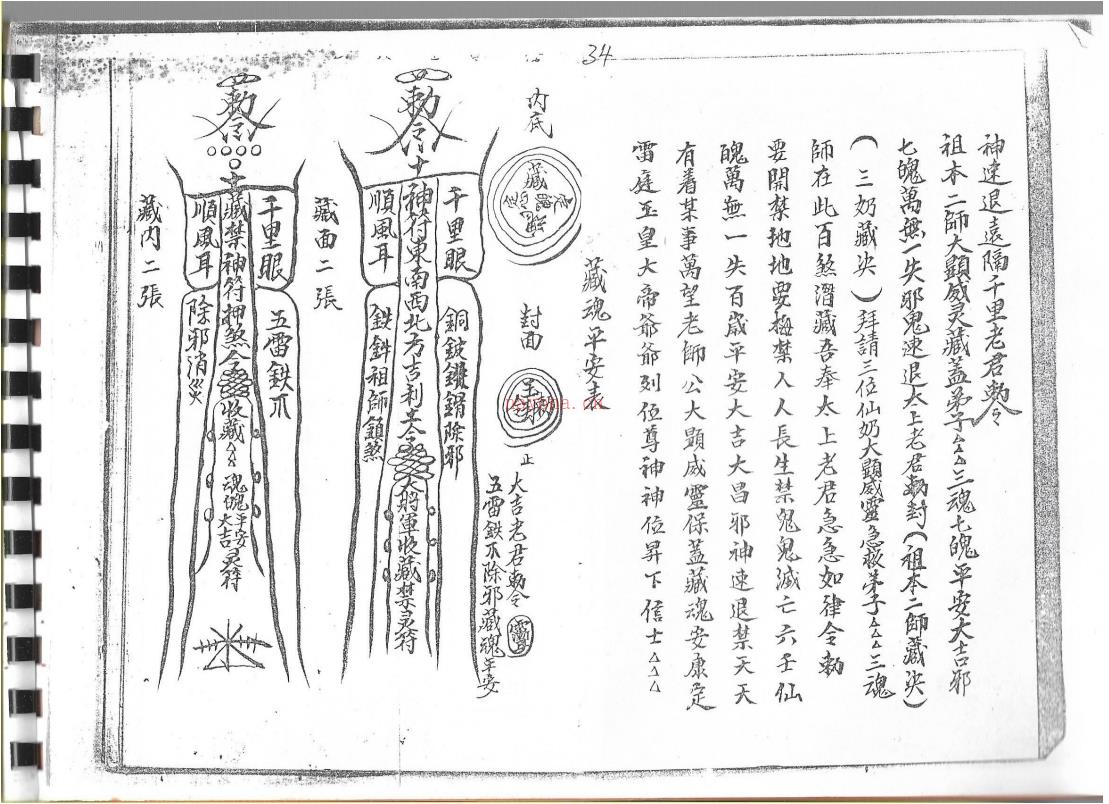 34
神速退遠隔千里老君勅令
祖本二師大顯威灵藏蓋弟子△△△三魂七魄平安大吉邪
七魄萬無一失邪鬼速退太上老君勅封(祖本二師藏決)
(三奶藏決)拜請三位仙奶大顯威靈急救弟子△△△三魂
師在此百煞潛藏吾奉太上老君急急如律令勅
要開禁地地要 禁人人長生禁鬼鬼滅亡六壬仙
魄萬無一失百歲平安大吉大昌邪神速退禁天天
有着某事萬望老師公大顯威靈保蓋藏魂安康 
雷庭玉皇大帝爺爺列位尊神神位昇下信士△△△
藏魂平安表
內底
藏
封面
正
大吉老君勅令
五雷鉄爪除邪藏魂平安
勅令
千里眼
順風耳
神符東南西北方吉利
大將軍收藏禁灵符
除邪
祖師鎖煞
藏面二張
勅令
千里眼
順風耳
藏禁神符押煞令
收藏
魂魄平安大吉灵符
五雷鉄爪
除邪消災
藏內二張